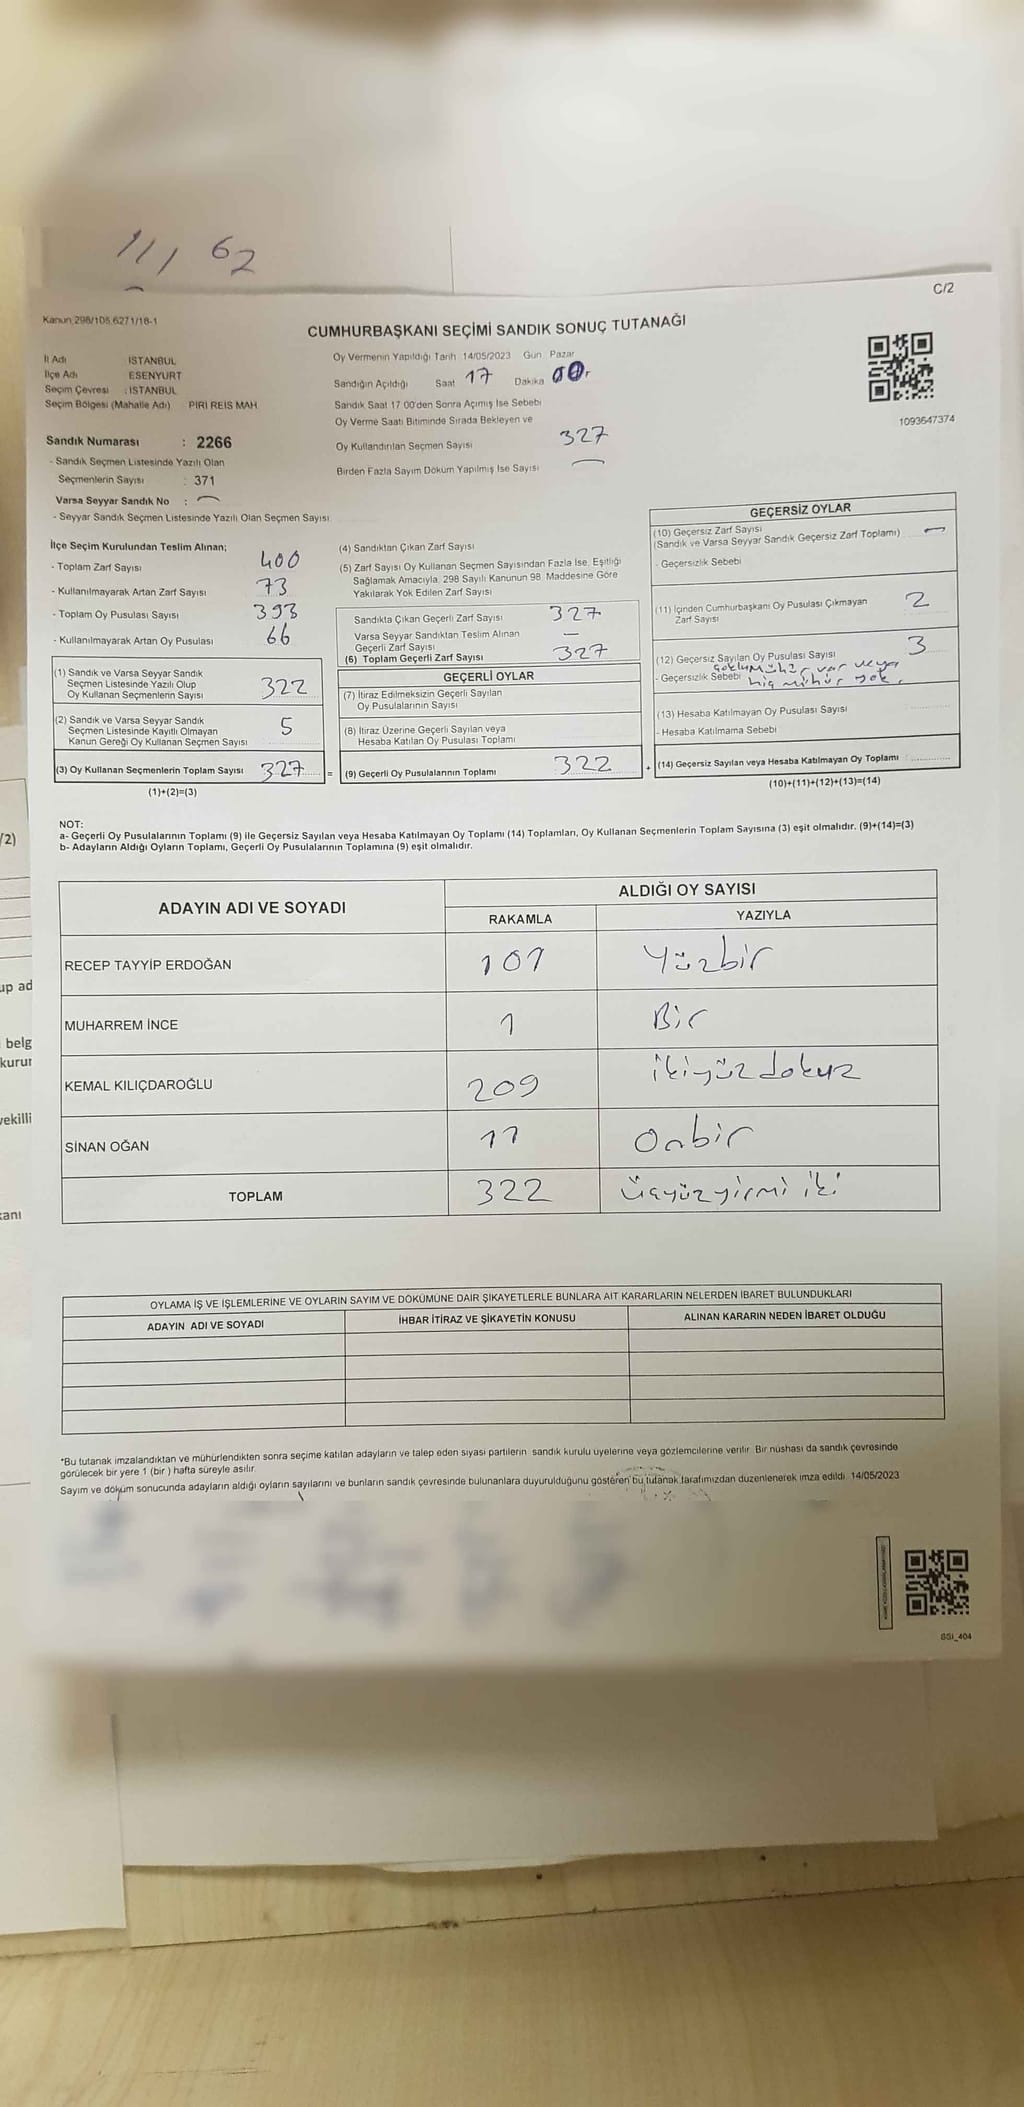 11, 62
C/2
Kanun 298/105,6271/18-1
CUMHURBAŞKANI SEÇİMİ SANDIK SONUÇ TUTANAĞI
İl Adı : İSTANBUL
İlçe Adı : ESENYURT
Seçim Çevresi : İSTANBUL
Seçim Bölgesi (Mahalle Adı) : PİRİ REİS MAH.
Sandık Numarası : 2266
- Sandık Seçmen Listesinde Yazılı Olan
Seçmenlerin Sayısı : 371
Varsa Seyyar Sandık No : —
- Seyyar Sandık Seçmen Listesinde Yazılı Olan Seçmen Sayısı
Oy Vermenin Yapıldığı Tarih 14/05/2023 Gün Pazar
Sandığın Açıldığı Saat 17 Dakika 00
Sandık Saat 17.00'den Sonra Açılmış İse Sebebi
Oy Verme Saati Bitiminde Sırada Bekleyen ve
Oy Kullandırılan Seçmen Sayısı 327
Birden Fazla Sayım Döküm Yapılmış İse Sayısı —
1093647374
İlçe Seçim Kurulundan Teslim Alınan;
- Toplam Zarf Sayısı 400
- Kullanılmayarak Artan Zarf Sayısı 73
- Toplam Oy Pusulası Sayısı 393
- Kullanılmayarak Artan Oy Pusulası 66
(1) Sandık ve Varsa Seyyar Sandık
Seçmen Listesinde Yazılı Olup
Oy Kullanan Seçmenlerin Sayısı 322
(2) Sandık ve Varsa Seyyar Sandık
Seçmen Listesinde Kayıtlı Olmayan
Kanun Gereği Oy Kullanan Seçmen Sayısı 5
(3) Oy Kullanan Seçmenlerin Toplam Sayısı 327 =
(1)+(2)=(3)
(4) Sandıktan Çıkan Zarf Sayısı
(5) Zarf Sayısı Oy Kullanan Seçmen Sayısından Fazla İse, Eşitliği
Sağlamak Amacıyla, 298 Sayılı Kanunun 98. Maddesine Göre
Yakılarak Yok Edilen Zarf Sayısı
Sandıkta Çıkan Geçerli Zarf Sayısı 327
Varsa Seyyar Sandıktan Teslim Alınan
Geçerli Zarf Sayısı —
(6) Toplam Geçerli Zarf Sayısı 327
GEÇERLİ OYLAR
(7) İtiraz Edilmeksizin Geçerli Sayılan
Oy Pusulalarının Sayısı
(8) İtiraz Üzerine Geçerli Sayılan veya
Hesaba Katılan Oy Pusulası Toplamı
(9) Geçerli Oy Pusulalarının Toplamı 322 +
GEÇERSİZ OYLAR
(10) Geçersiz Zarf Sayısı
(Sandık ve Varsa Seyyar Sandık Geçersiz Zarf Toplamı) —
- Geçersizlik Sebebi
(11) İçinden Cumhurbaşkanı Oy Pusulası Çıkmayan
Zarf Sayısı 2
(12) Geçersiz Sayılan Oy Pusulası Sayısı 3
- Geçersizlik Sebebi çoklu mühür var veya
hiç mühür yok.
(13) Hesaba Katılmayan Oy Pusulası Sayısı
- Hesaba Katılmama Sebebi
(14) Geçersiz Sayılan veya Hesaba Katılmayan Oy Toplamı
(10)+(11)+(12)+(13)=(14)
NOT:
a- Geçerli Oy Pusulalarının Toplamı (9) ile Geçersiz Sayılan veya Hesaba Katılmayan Oy Toplamı (14) Toplamları, Oy Kullanan Seçmenlerin Toplam Sayısına (3) eşit olmalıdır. (9)+(14)=(3)
b- Adayların Aldığı Oyların Toplamı, Geçerli Oy Pusulalarının Toplamına (9) eşit olmalıdır.
ADAYIN ADI VE SOYADI
ALDIĞI OY SAYISI
RAKAMLA YAZIYLA
RECEP TAYYİP ERDOĞAN 101 Yüzbir
MUHARREM İNCE 1 Bir
KEMAL KILIÇDAROĞLU 209 ikiyüz dokuz
SİNAN OĞAN 11 Onbir
TOPLAM 322 üçyüzyirmi iki
OYLAMA İŞ VE İŞLEMLERİNE VE OYLARIN SAYIM VE DÖKÜMÜNE DAİR ŞİKAYETLERLE BUNLARA AİT KARARLARIN NELERDEN İBARET BULUNDUKLARI
ADAYIN ADI VE SOYADI İHBAR İTİRAZ VE ŞİKAYETİN KONUSU ALINAN KARARIN NEDEN İBARET OLDUĞU
*Bu tutanak imzalandıktan ve mühürlendikten sonra seçime katılan adayların ve talep eden siyasi partilerin sandık kurulu üyelerine veya gözlemcilerine verilir. Bir nüshası da sandık çevresinde
görülecek bir yere 1 (bir) hafta süreyle asılır.
Sayım ve döküm sonucunda adayların aldığı oyların sayılarını ve bunların sandık çevresinde bulunanlara duyurulduğunu gösteren bu tutanak tarafımızdan düzenlenerek imza edildi. 14/05/2023
/2)
up ad
belg
kurur
vekilli
kanı